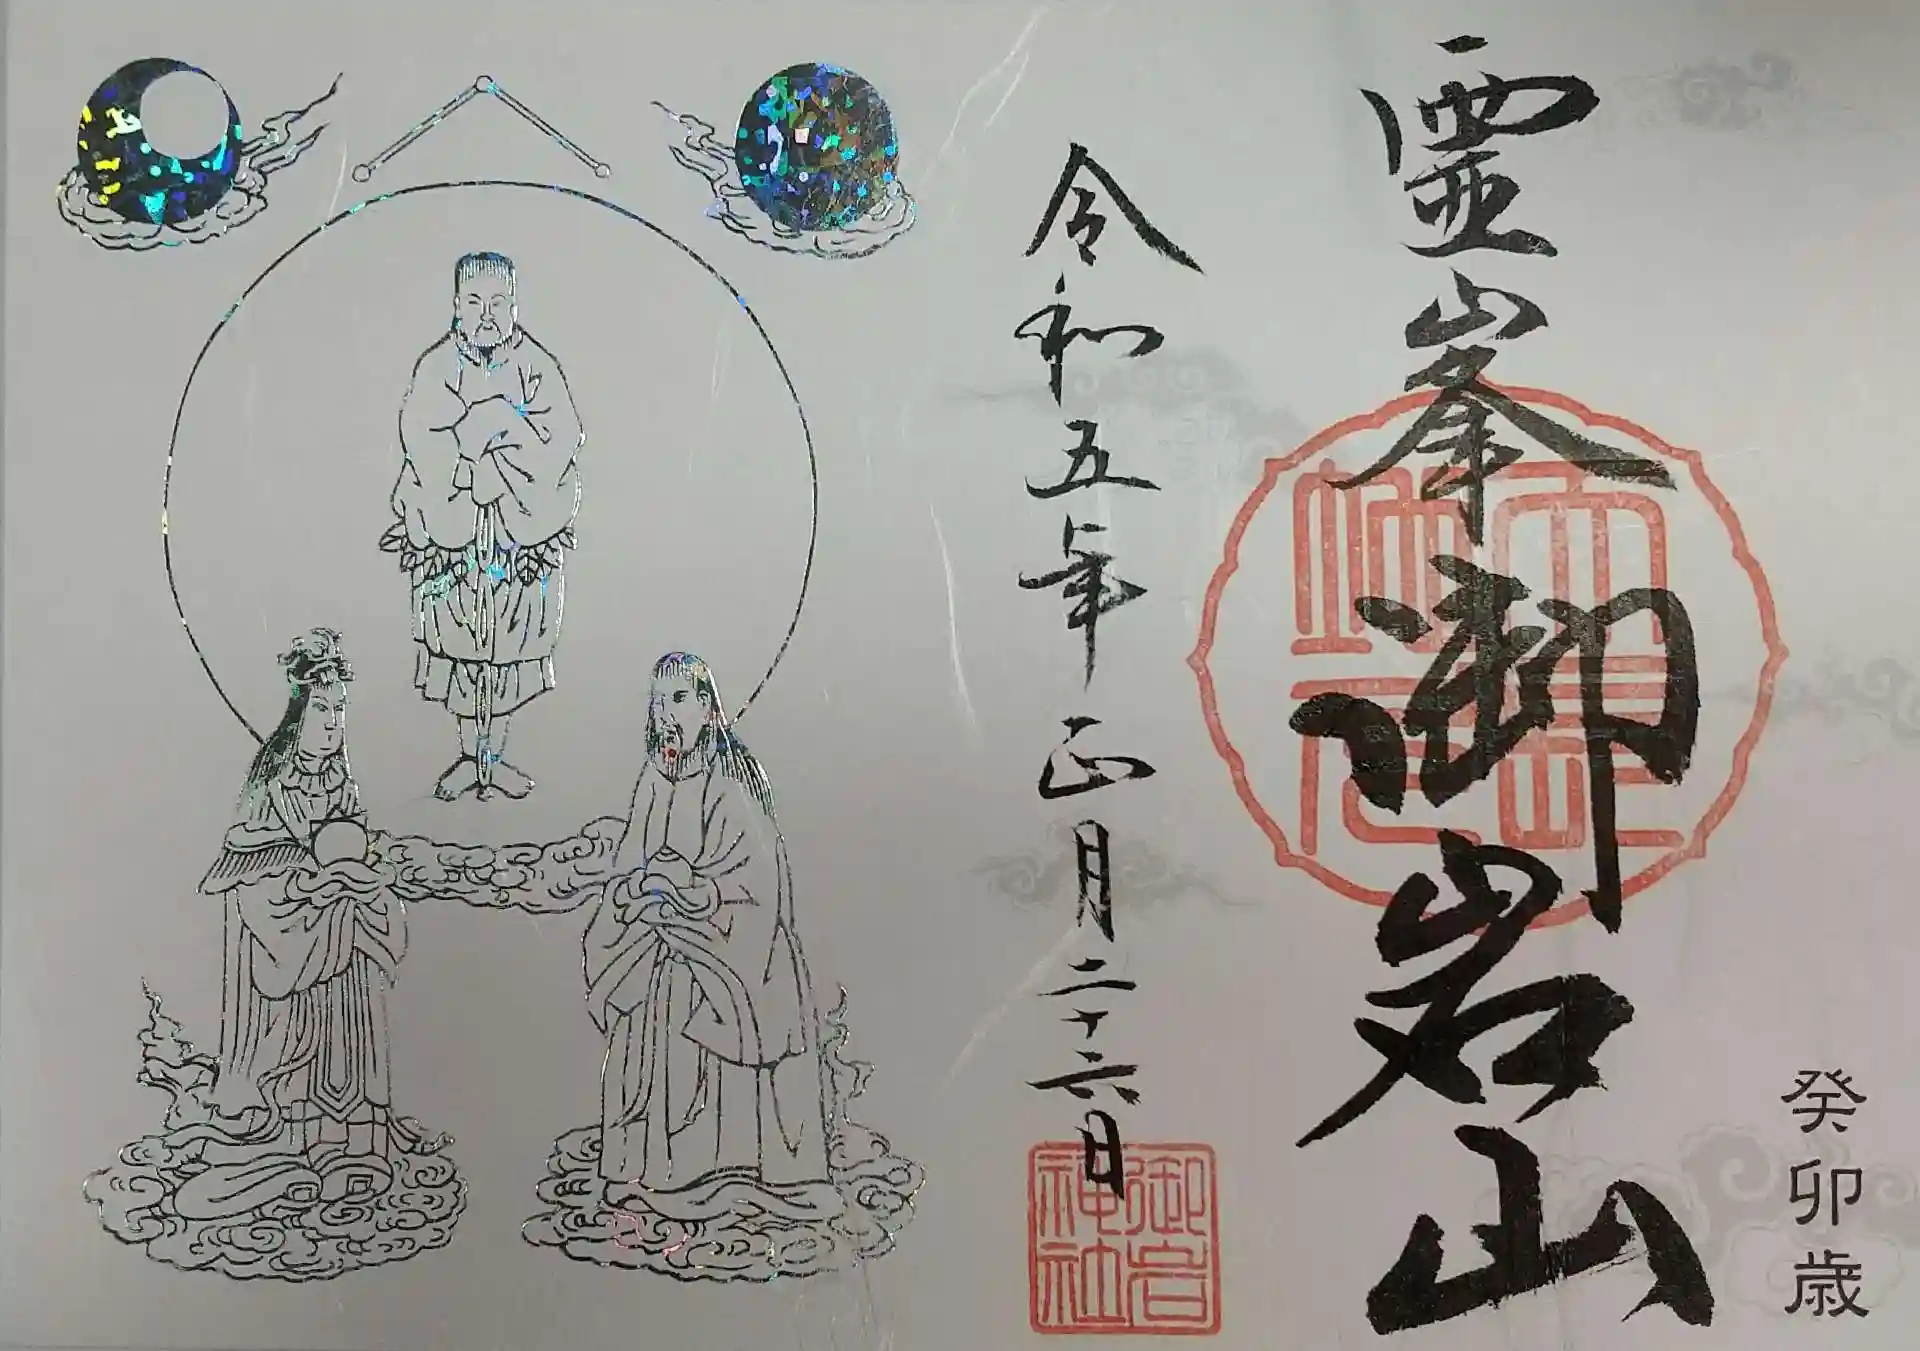 靈峯御岩山
令和五年正月二十六日
癸卯歳
御岩
神社